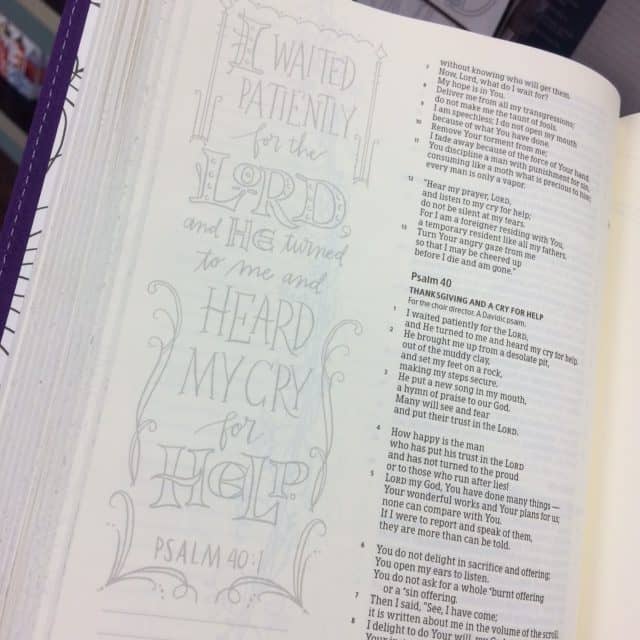 I WAITED
PATIENTLY
for the
LORD,
and HE turned
to me and
HEARD
MY CRY
for
HELP.
PSALM 40:1
7 without knowing who will get them.
Now, Lord, what do I wait for?
8 My hope is in You.
Deliver me from all my transgressions;
9 do not make me the taunt of fools.
I am speechless; I do not open my mouth
10 because of what You have done.
Remove Your torment from me;
11 I fade away because of the force of Your hand.
You discipline a man with punishment for sin,
consuming like a moth what is precious to him;
every man is only a vapor.
12 "Hear my prayer, LORD,
and listen to my cry for help;
do not be silent at my tears.
For I am a foreigner residing with You,
a temporary resident like all my fathers.
13 Turn Your angry gaze from me
so that I may be cheered up
before I die and am gone."
Psalm 40
THANKSGIVING AND A CRY FOR HELP
For the choir director. A Davidic psalm.
1 I waited patiently for the LORD,
and He turned to me and heard my cry for help.
2 He brought me up from a desolate pit,
out of the muddy clay,
and set my feet on a rock,
making my steps secure.
3 He put a new song in my mouth,
a hymn of praise to our God.
Many will see and fear
and put their trust in the LORD.
4 How happy is the man
who has put his trust in the LORD
and has not turned to the proud
or to those who run after lies!
5 LORD my God, You have done many things —
Your wonderful works and Your plans for us;
none can compare with You.
If I were to report and speak of them,
they are more than can be told.
6 You do not delight in sacrifice and offering;
You open my ears to listen.
You do not ask for a whole burnt offering
or a sin offering.
7 Then I said, "See, I have come;
it is written about me in the volume of the scroll.
8 I delight to do Your will, my God